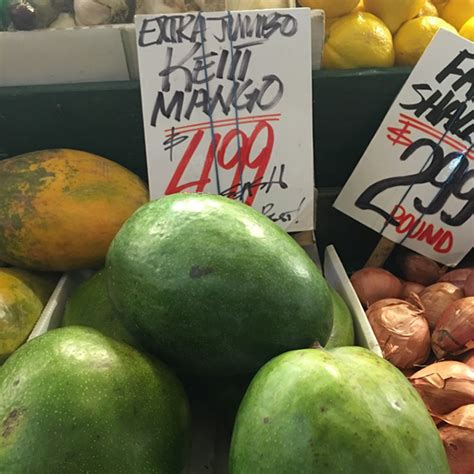 EXTRA JUMBO
KEITT
MANGO
$4.99
EACH
Best!
FR
SHA
$2.99
POUND